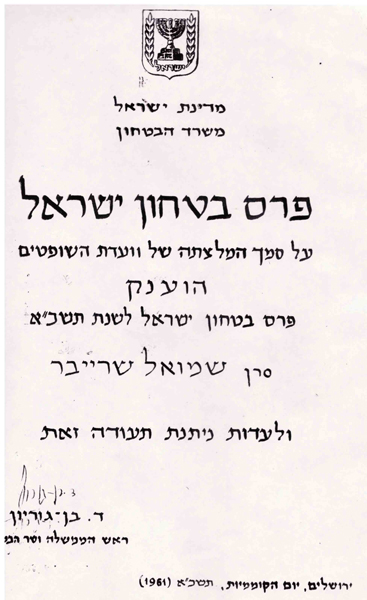 ישראל
מדינת ישראל
משרד הבטחון
פרס בטחון ישראל
על סמך המלצתה של וועדת השופטים
הוענק
פרס בטחון ישראל לשנת תשכ"א
סרן שמואל שרייבר
ולעדות ניתנת תעודה זאת
ד. בן-גוריון
ראש הממשלה ושר הבט
ירושלים, יום הקוממיות, תשכ"א (1961)